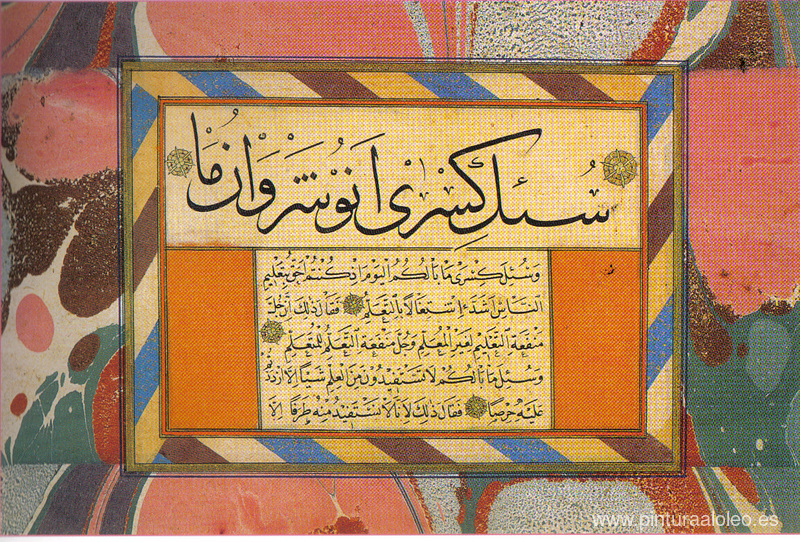 سُئِلَ كِسْرَى اَنُوشَرْوَانْ مَا
وَسُئِلَ كِسْرَى مَا بَالُكُمُ الْيَوْمَ اِذْ كُنْتُمْ اَحَقَّ بِتَعْلِيمِ
النَّاسِ اَشَدَّ اِسْتِعَالًا بِالتَّعَلُّمِ فَقَالَ ذٰلِكَ اَنَّ جُلَّ
مَنْفَعَةِ التَّعْلِيمِ لِغَيْرِ الْمُعَلِّمِ وَجُلَّ مَنْفَعَةِ التَّعَلُّمِ لِلْمُتَعَلِّمِ
وَسُئِلَ مَا بَالُكُمْ لَا تَسْتَفِيدُونَ مِنَ الْعِلْمِ شَيْئًا اِلَّا ازْدَدْتُمْ
عَلَيْهِ حِرْصًا فَقَالَ ذٰلِكَ لِاَنَّا لَا نَسْتَفِيدُ مِنْهُ طَرَفًا اِلَّا
www.pinturaaloleo.es